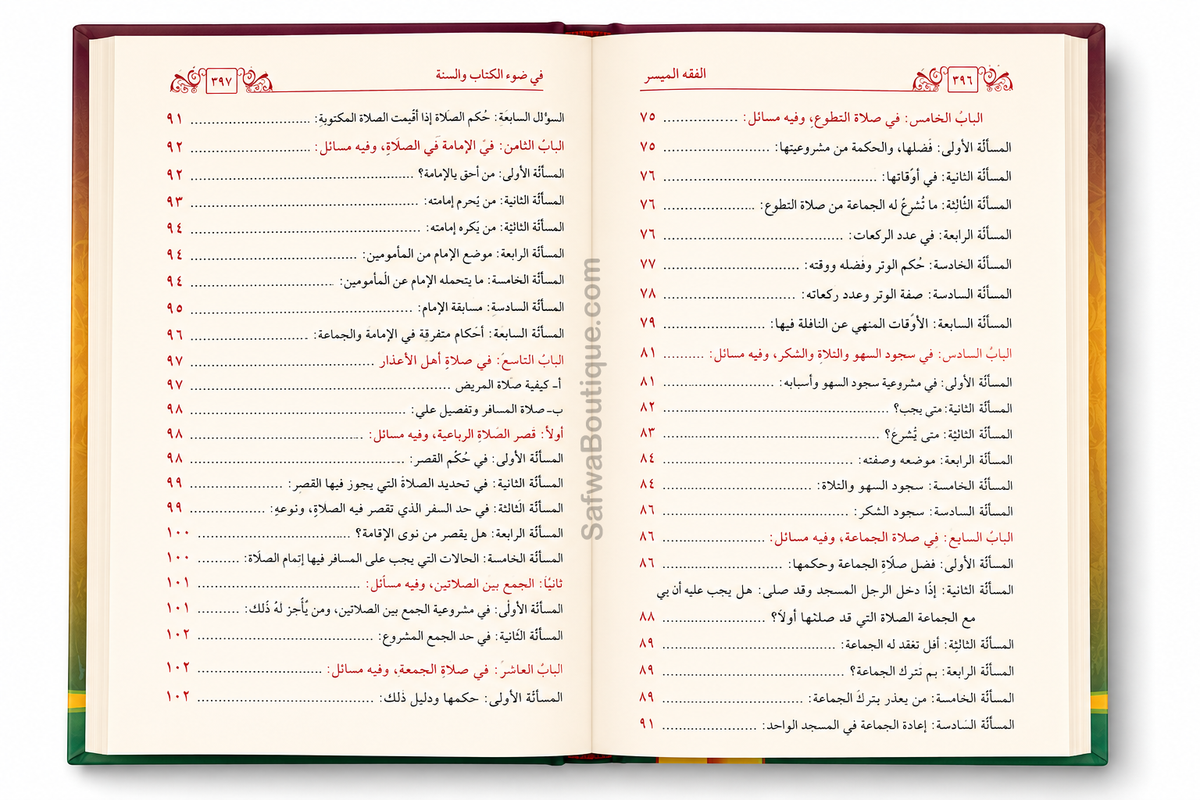 الفقه الميسر
٣٩٦
البابُ الخامس: في صلاة التطوع، وفيه مسائل: ٧٥
المسألة الأولى: فَضلها، والحكمة من مشروعيتها: ٧٥
المسألة الثانية: في أوقاتها: ٧٦
المسألة الثالِثة: ما تُشرعُ له الجماعة من صلاة التطوع: ٧٦
المسألة الرابعة: في عدد الركعات: ٧٦
المسألة الخادسة: حُكم الوتر وفَضله ووقته: ٧٧
المسألة السادسة: صفة الوتر وعدد ركعاته: ٧٨
المسألة السابعة: الأوقات المنهي عن النافلة فيها: ٧٩
البابُ السادس: في سجود السهو والتلاةِ والشكر، وفيه مسائل: ٨١
المسألة الأولى: في مشروعية سجود السهو وأسبابه: ٨١
المسألة الثانية: متى يجب؟ ٨٢
المسألة الثانيَة: متى يُشرع؟ ٨٣
المسألة الرابعة: موضعه وصفته: ٨٤
المسألة الخامسة: سجود السهو والتلاة: ٨٤
المسألة السادسة: سجود الشكر: ٨٦
البابُ السابع: في صلاة الجماعة، وفيه مسائل: ٨٦
المسألة الأولى: فضل صلَاةِ الجماعة وحكمها: ٨٦
المسألة الثانية: إذًا دخل الرجل المسجد وقد صلى: هل يجب عليه أن يي
مع الجماعة الصلاة التي قد صلتها أولاً؟ ٨٨
المسألة الثالثِة: أقل تغقد له الجماعة: ٨٩
المسألة الرابعة: بم تَترك الجماعة؟ ٨٩
المسألة الخامسة: من يعذر بترك الجماعة: ٨٩
المسألة السَادسة: إعادة الجماعة في المسجد الواحد: ٩١
في ضوء الكتاب والسنة
٣٩٧
السؤلل السابعَة: حُكم الصلَاة إذا أقيمت الصلاة المكتوبةِ: ٩١
البابُ الثامن: فيْ الإمامة فَي الصلَاةِ، وفيه مسائل: ٩٢
المسألة الأولى: من أحق يالإمامة؟ ٩٢
المسألة الثانية: من يُحرم إمامته: ٩٣
المسألة الثانيَة: من يَكره إمامته: ٩٤
المسألة الرابعة: موضع الإمام من المأمومين: ٩٤
المسألة الخامسة: ما يتحمله الإمام عن المأمومين: ٩٤
المسألة السادسةِ: مسابقة الإمام: ٩٥
المسألة السابعَة: أحَكام متفرقةِ في الإمامة والجماعة: ٩٦
البابُ التاسعَ: في صلاةِ أهل الأعذار ٩٧
أ- كيفية صلَاة المريض ٩٧
ب- صلاة المسافر وتفصيل علي: ٩٨
أولاً: قصر الصَلاةِ الرباعية، وفيه مسائل: ٩٨
المسألة الأولى: في حُكْم القصر: ٩٨
المسألة الثانية: في تحديد الصلاةَ التي يجوز فيها القصرِ: ٩٩
المسألة الثَالثة: في حد السفر الذي تقصر فيه الصلاةِ، ونوعهِ: ٩٩
المسألة الرابعة: هل يقصر من نوى الإقامة؟ ١٠٠
المسألة الخامسة: الحالات التي يجب على المسافر فيها إتمام الصلَاة: ١٠٠
ثانيًا: الجمع بين الصلاتين، وفيه مسائل: ١٠١
المسألة الأولَى: في مشروعية الجمع بين الصلاتين، ومن يُأجز لهُ ذُلك: ١٠١
المسألة الثَانية: في حد الجمع المشروع: ١٠٢
البابُ العاشرَ: في صلاةِ الجمعةِ، وفيه مسائل: ١٠٢
المسألة الأولى: حكمها ودليل ذلك: ١٠٢
SafwaBoutique.com